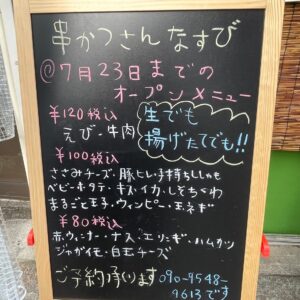 串かつさんなすび
@7月23日までの
オープンメニュー
¥120税込
えび・牛肉
生でも
揚げたてでも!!
¥100税込
ささみチーズ・豚ヒレ・子持ちししゃも
ベビーホタテ・キス・イカ・しそちくわ
まるごと玉子・ウィンピー・玉ネギ
¥80税込
赤ウィンナー・ナス・エリンギ・ハムカツ
ジャガイモ・白玉チーズ
ご予約承ります
090-9548-
9613です